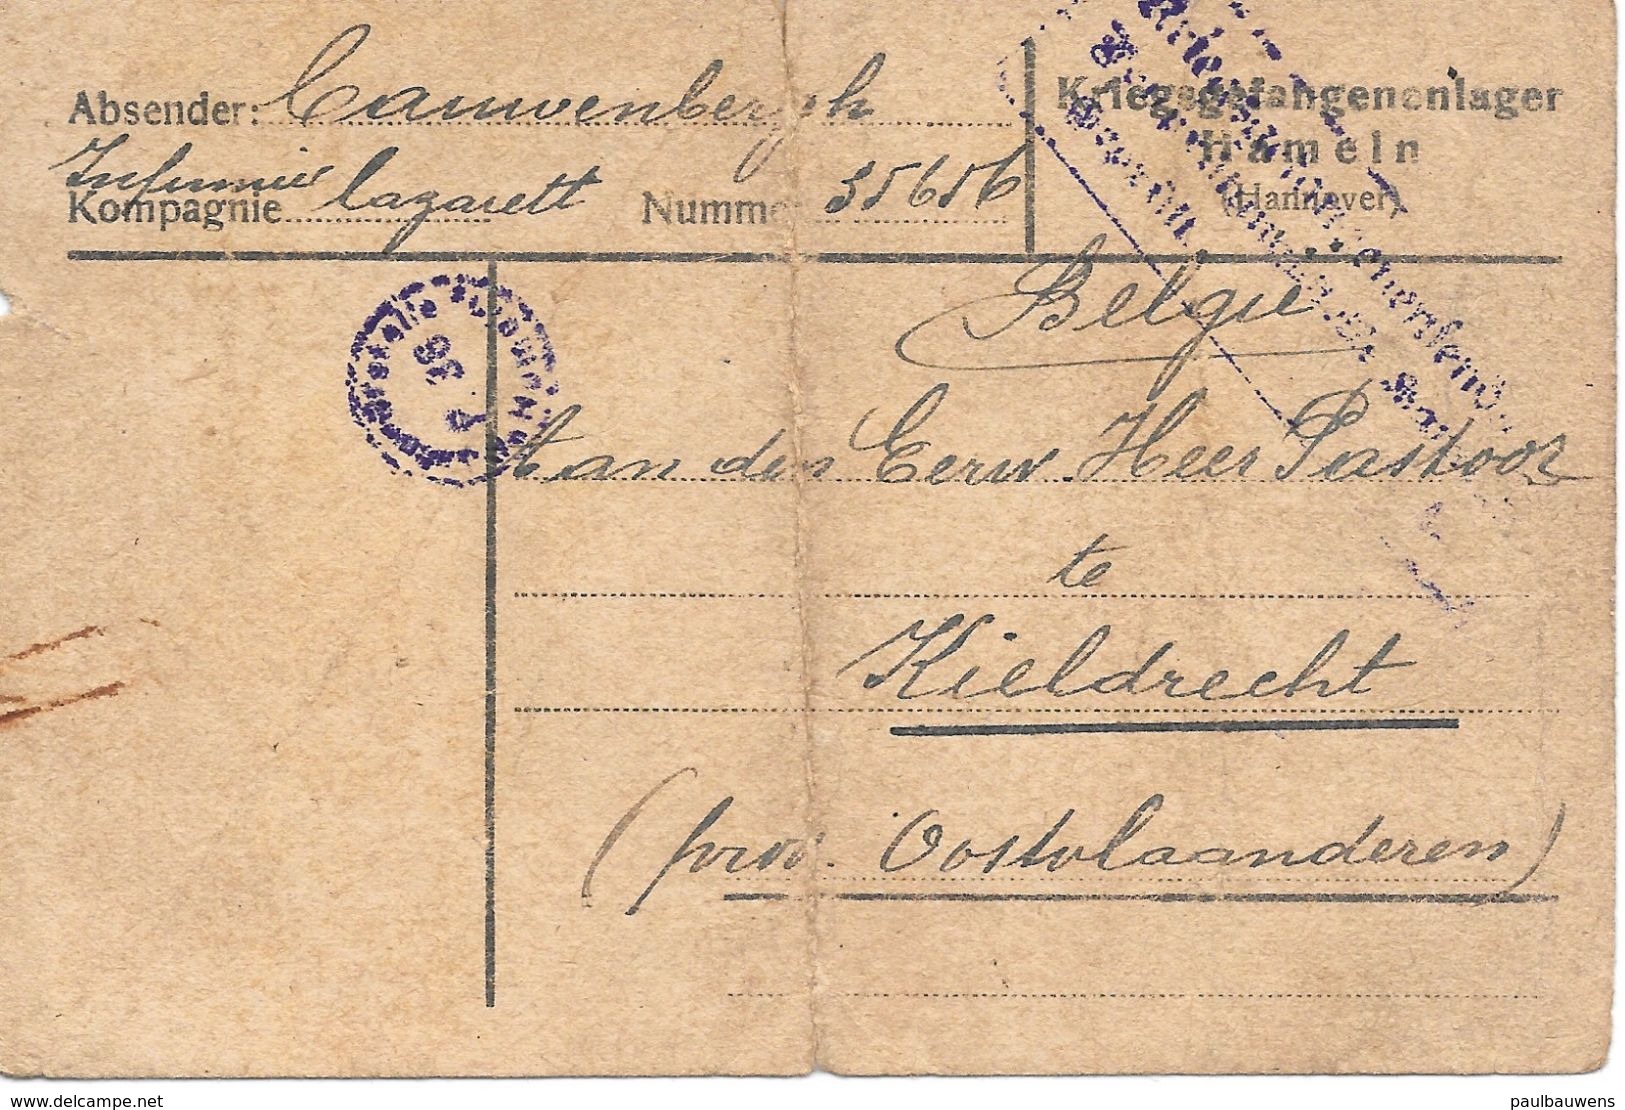 Absender: Cauwenbergh
Infirmier
Kompagnie lazarett Nummer 35656
Kriegsgefangenenlager
Hameln
(Hannover)
Belgie
Aan den Eerw. Heer Pastoor
te
Kieldrecht
(prov. Oostvlaanderen)
36
delcampe.net
paulbauwens